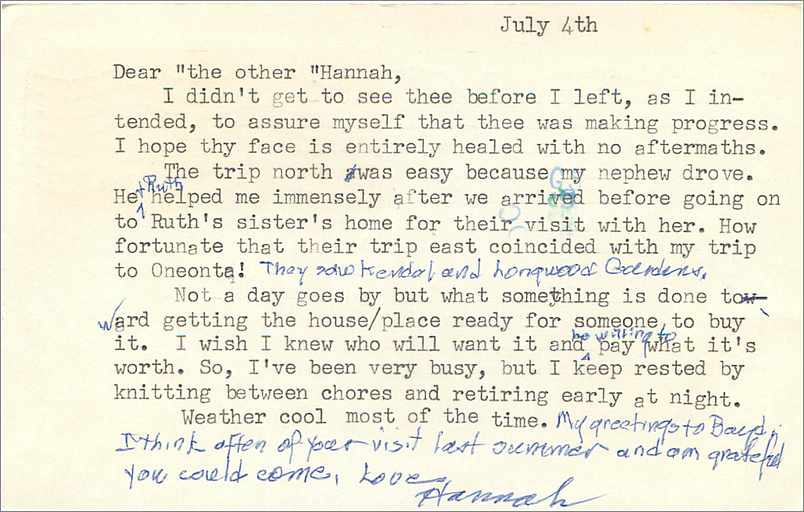 July 4th
Dear "the other "Hannah,
I didn't get to see thee before I left, as I in-
tended, to assure myself that thee was making progress.
I hope thy face is entirely healed with no aftermaths.
The trip north was easy because my nephew drove.
He + Ruth helped me immensely after we arrived before going on
to Ruth's sister's home for their visit with her. How
fortunate that their trip east coincided with my trip
to Oneonta! They saw Kendal and Longwood Gardens.
Not a day goes by but what something is done to
ward getting the house/place ready for someone to buy
it. I wish I knew who will want it and be willing to pay what it's
worth. So, I've been very busy, but I keep rested by
knitting between chores and retiring early at night.
Weather cool most of the time. My greetings to Boyd.
I think often of your visit last summer and am grateful
you could come. Love,
Hannah